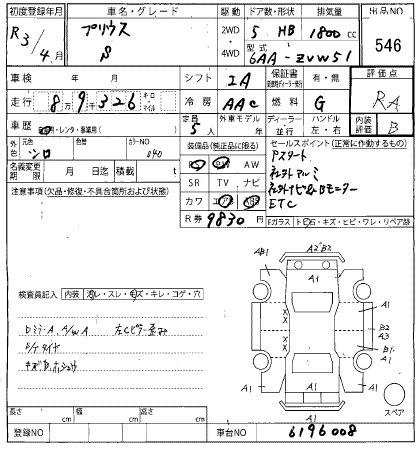 初度登録年月 車名・グレード 駆動 ドア数・形状 排気量 出品NO
R3/4月 プリウス S 2WD・4WD 5 HB 1800cc 546
型式 6AA-ZVW51
車検 年 月 シフト IA 保証書 有・無 評価点
走行 89,326 キロ マイル 冷房 AAC 燃料 G RA
車歴 レンタ・事業用 定員 5人 外車モデル 年 ディーラー・並行 ハンドル 左・右 内装評価 B
元色 シロ 色替 カラーNO 040
装備品(純正品に限る) セールスポイント(正常に作動するもの)
名義変更期限 月 日 迄 積載 t
PS PW AW
SR TV ナビ
カワ エアB ABS
R券 9830円
アスタート
ETC
注意事項(欠品・修復・不具合箇所および状態)
Fガラス キズ・ヒビ・ワレ・リペア跡
検査員記入 内装 スレ・キズ・キレ・コゲ・穴
A2 B2
AB1 A1
A1 A1
B2 A3
B1 A1
A1 A1 A1
A1
スペア
長さ cm 幅 cm 高さ cm
登録NO 車台NO 6196008